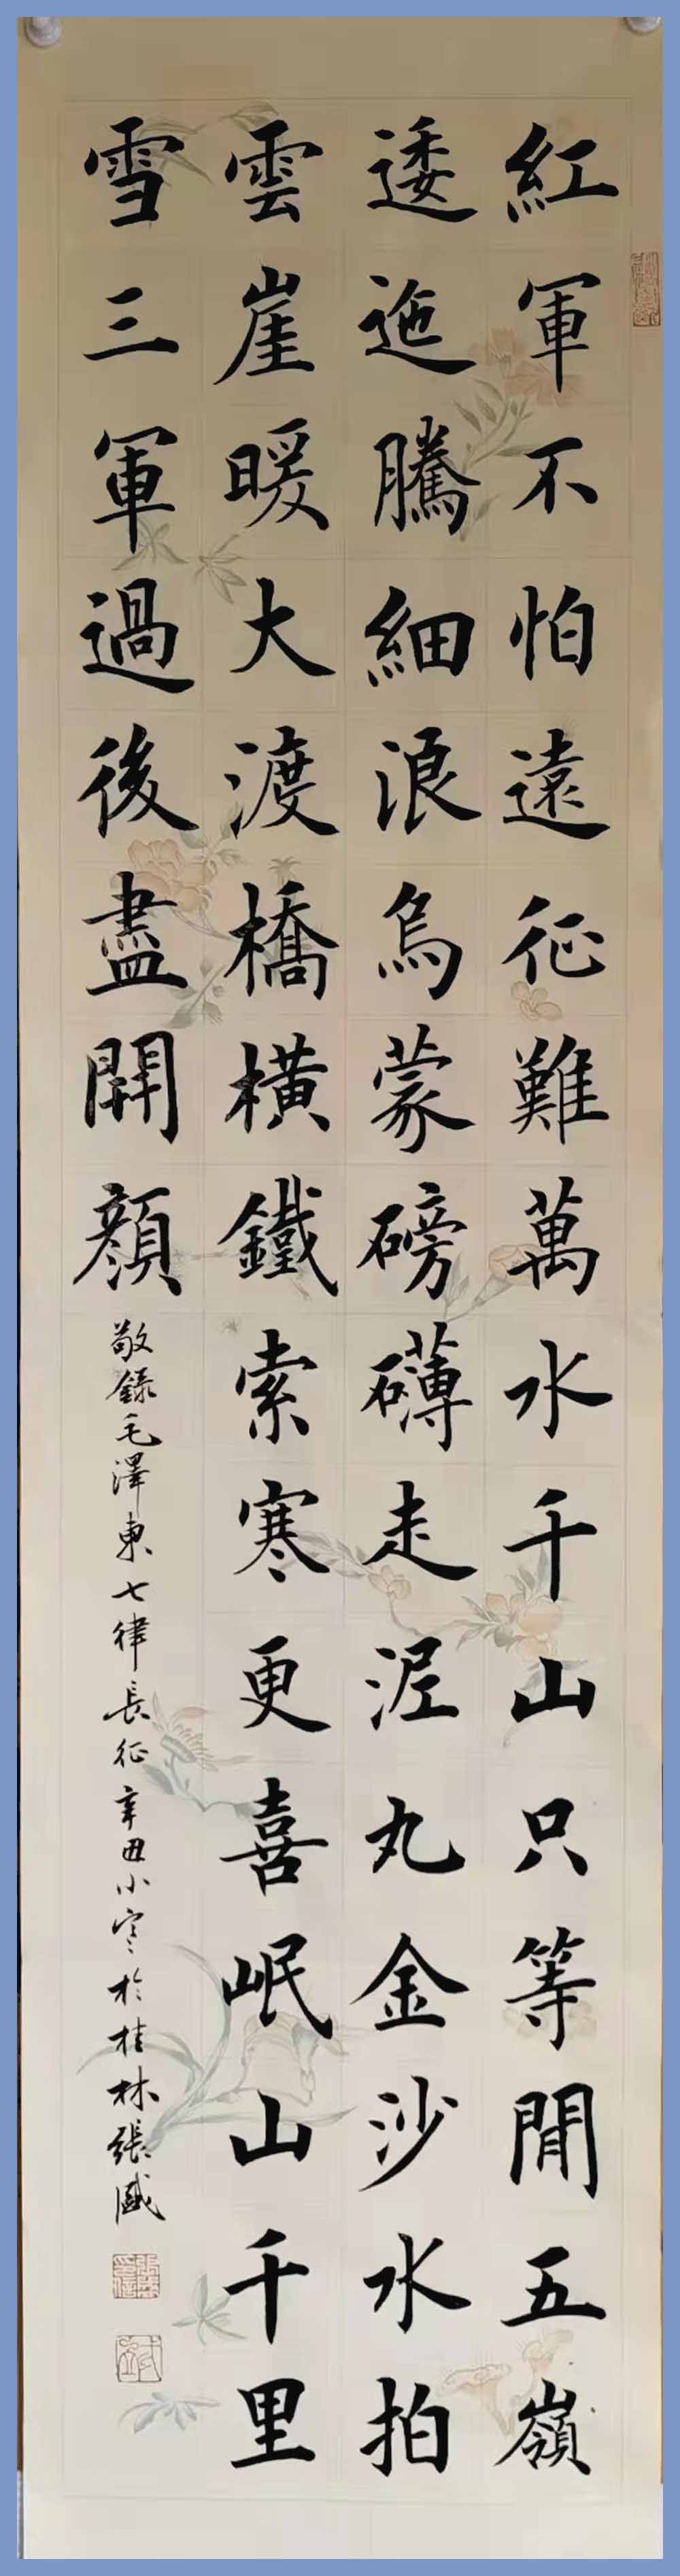 紅軍不怕遠征難萬水千山只等閒五嶺
逶迤騰細浪烏蒙磅礡走泥丸金沙水拍
雲崖暖大渡橋橫鐵索寒更喜岷山千里
雪三軍過後盡開顏
敬録毛澤東七律長征辛丑小寒於桂林張盛